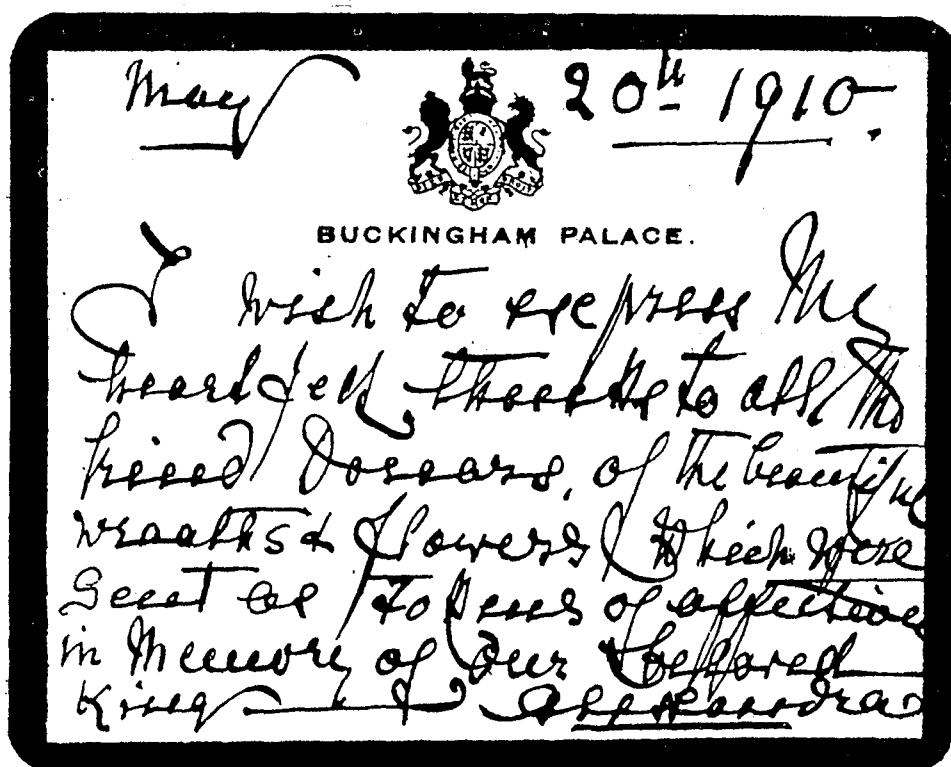 May 20th 1910.
BUCKINGHAM PALACE.
I wish to express My
heartfelt thanks to all the
kind Donors, of the beautiful
wreaths & flowers which were
Sent as Tokens of affection
in Memory of Our Beloved
King Alexandra